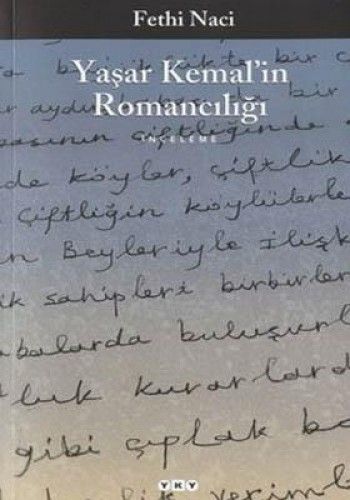 Fethi Naci
Yaşar Kemal'in
Romancılığı
İNCELEME
bir
çiftliğinde
de köyler, çiftlik
çiftliğin köylüler
Beyleriyle ilişk
ik sahipleri birbirler
abalarda buluşurl
luk kurarlard
gibi çıplak ba
YKY